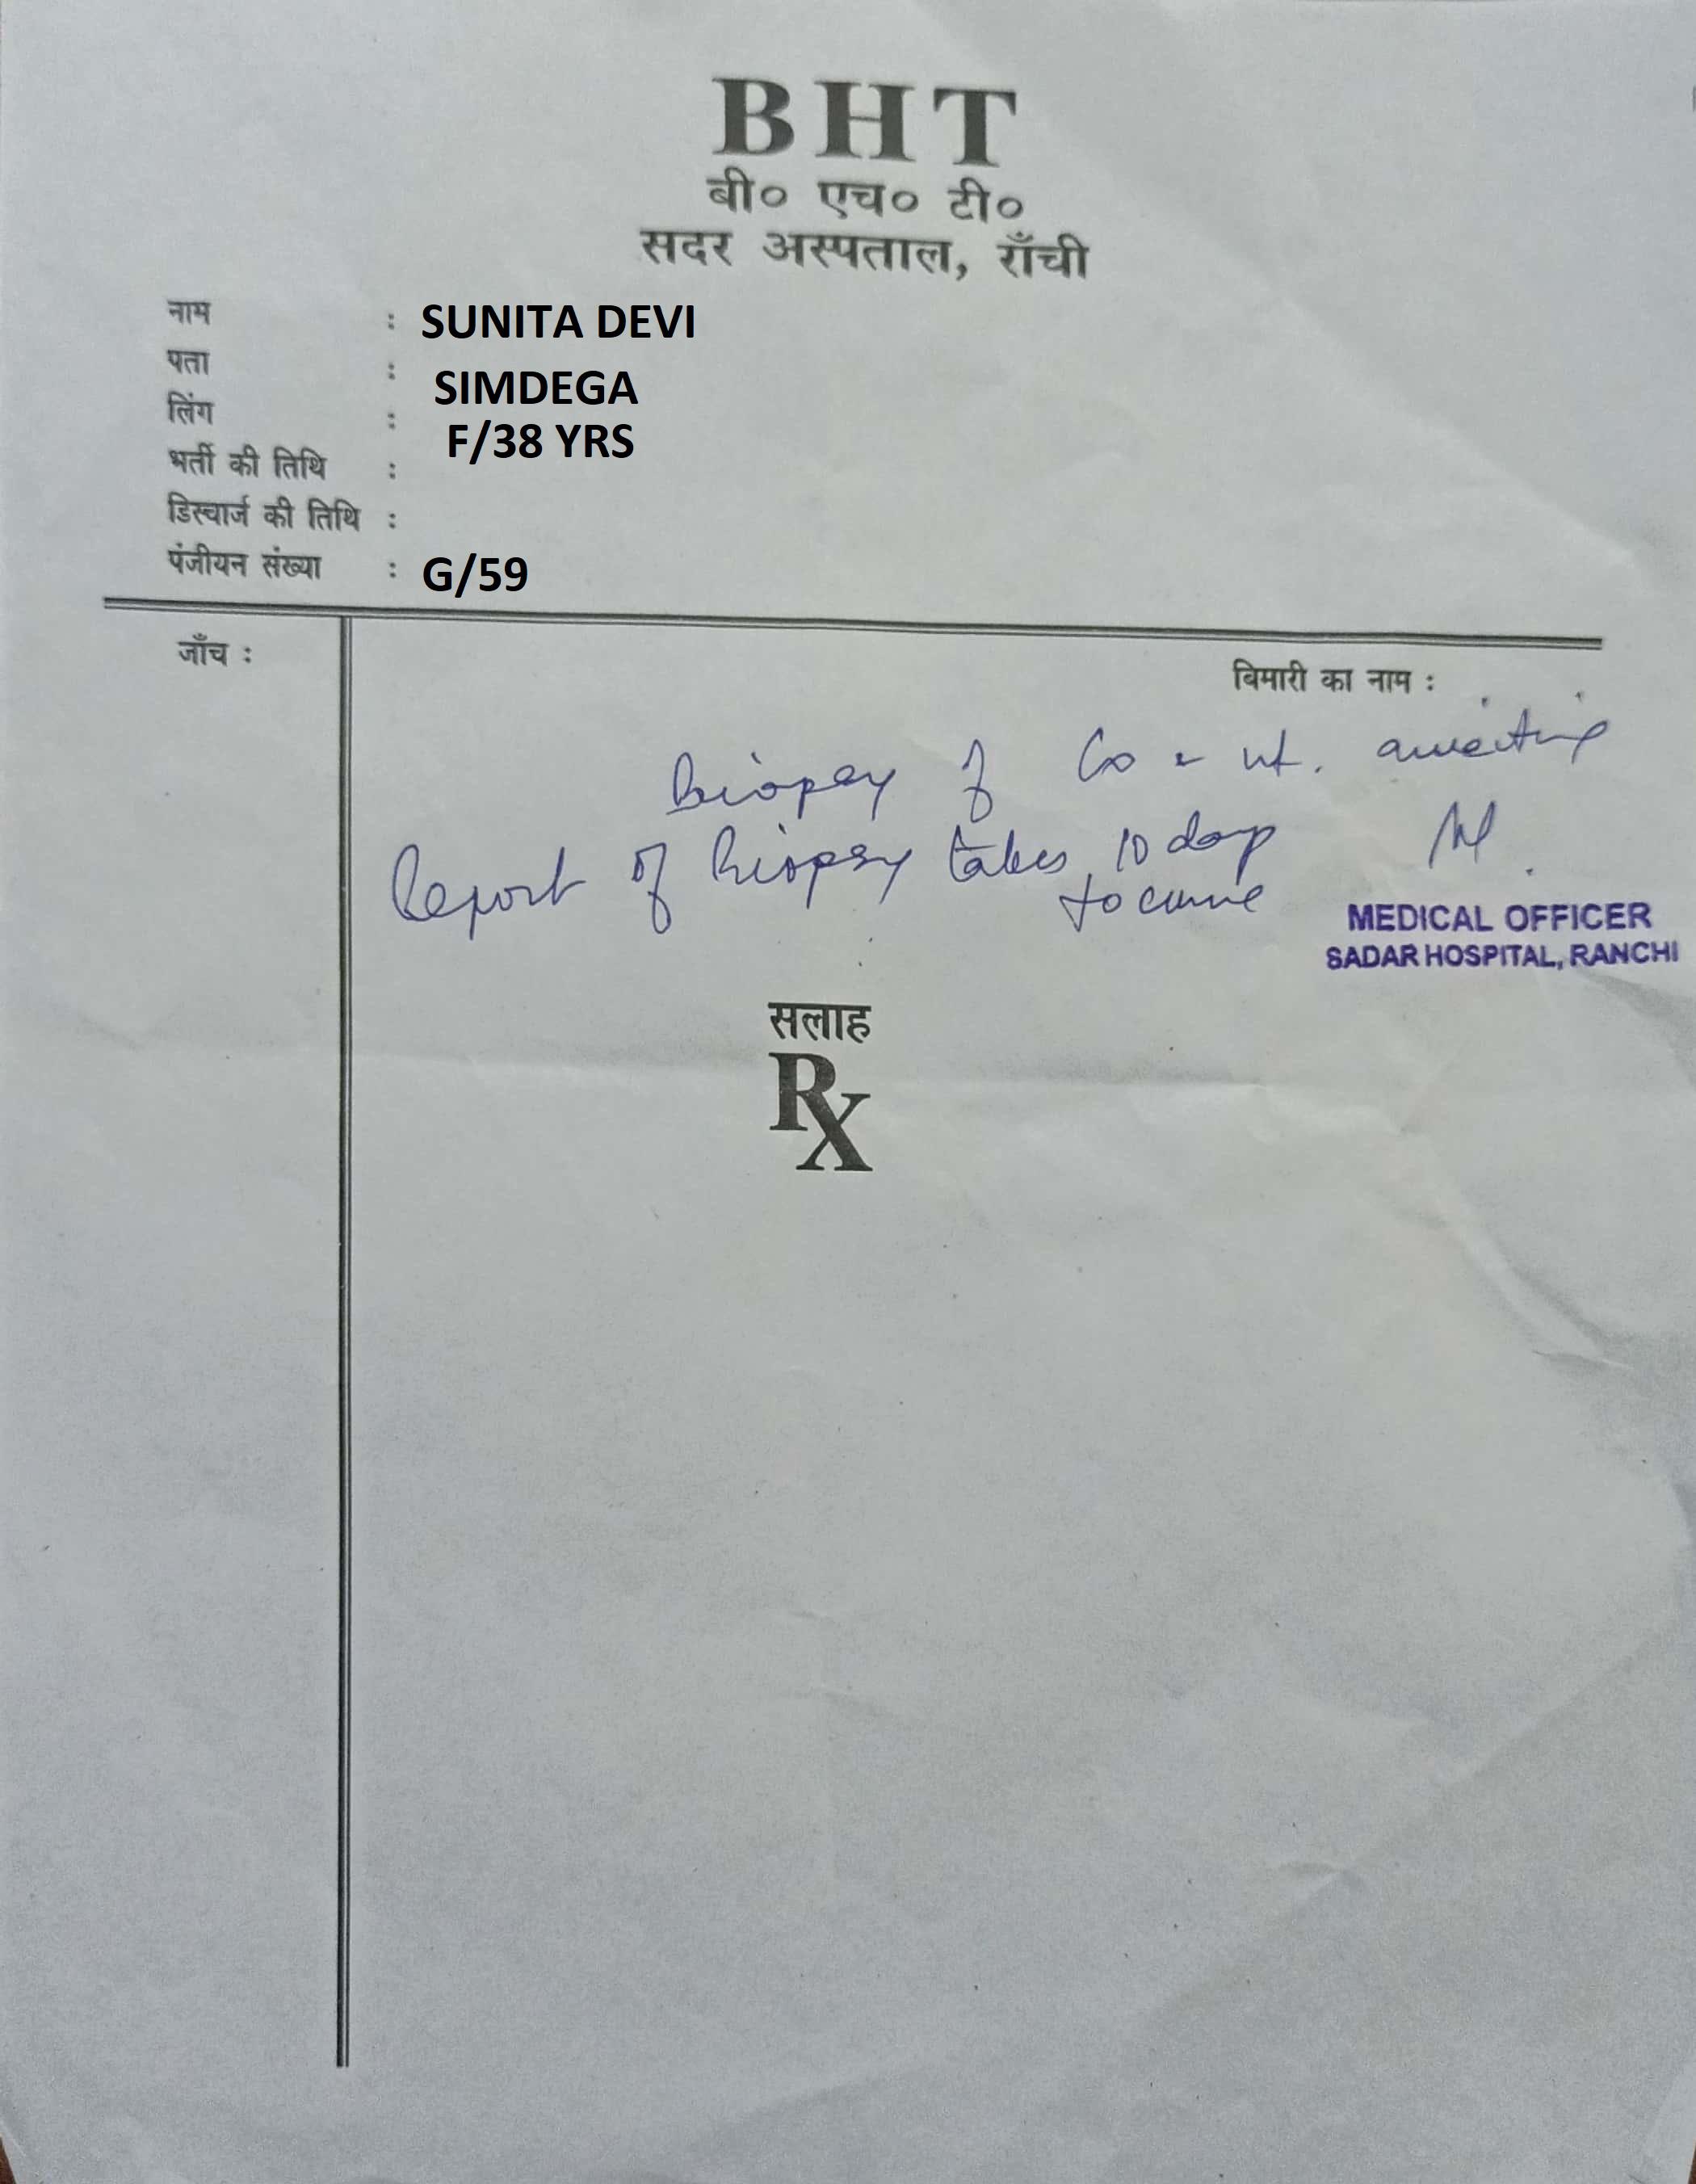 BHT
बी० एच० टी०
सदर अस्पताल, राँची
नाम : SUNITA DEVI
पता : SIMDEGA
लिंग : F/38 YRS
भर्ती की तिथि :
डिस्चार्ज की तिथि :
पंजीयन संख्या : G/59
जाँच :
बिमारी का नाम :
Biopsy of ut. awaiting
Report of Biopsy takes 10 days
to come
MEDICAL OFFICER
SADAR HOSPITAL, RANCHI
सलाह
Rx